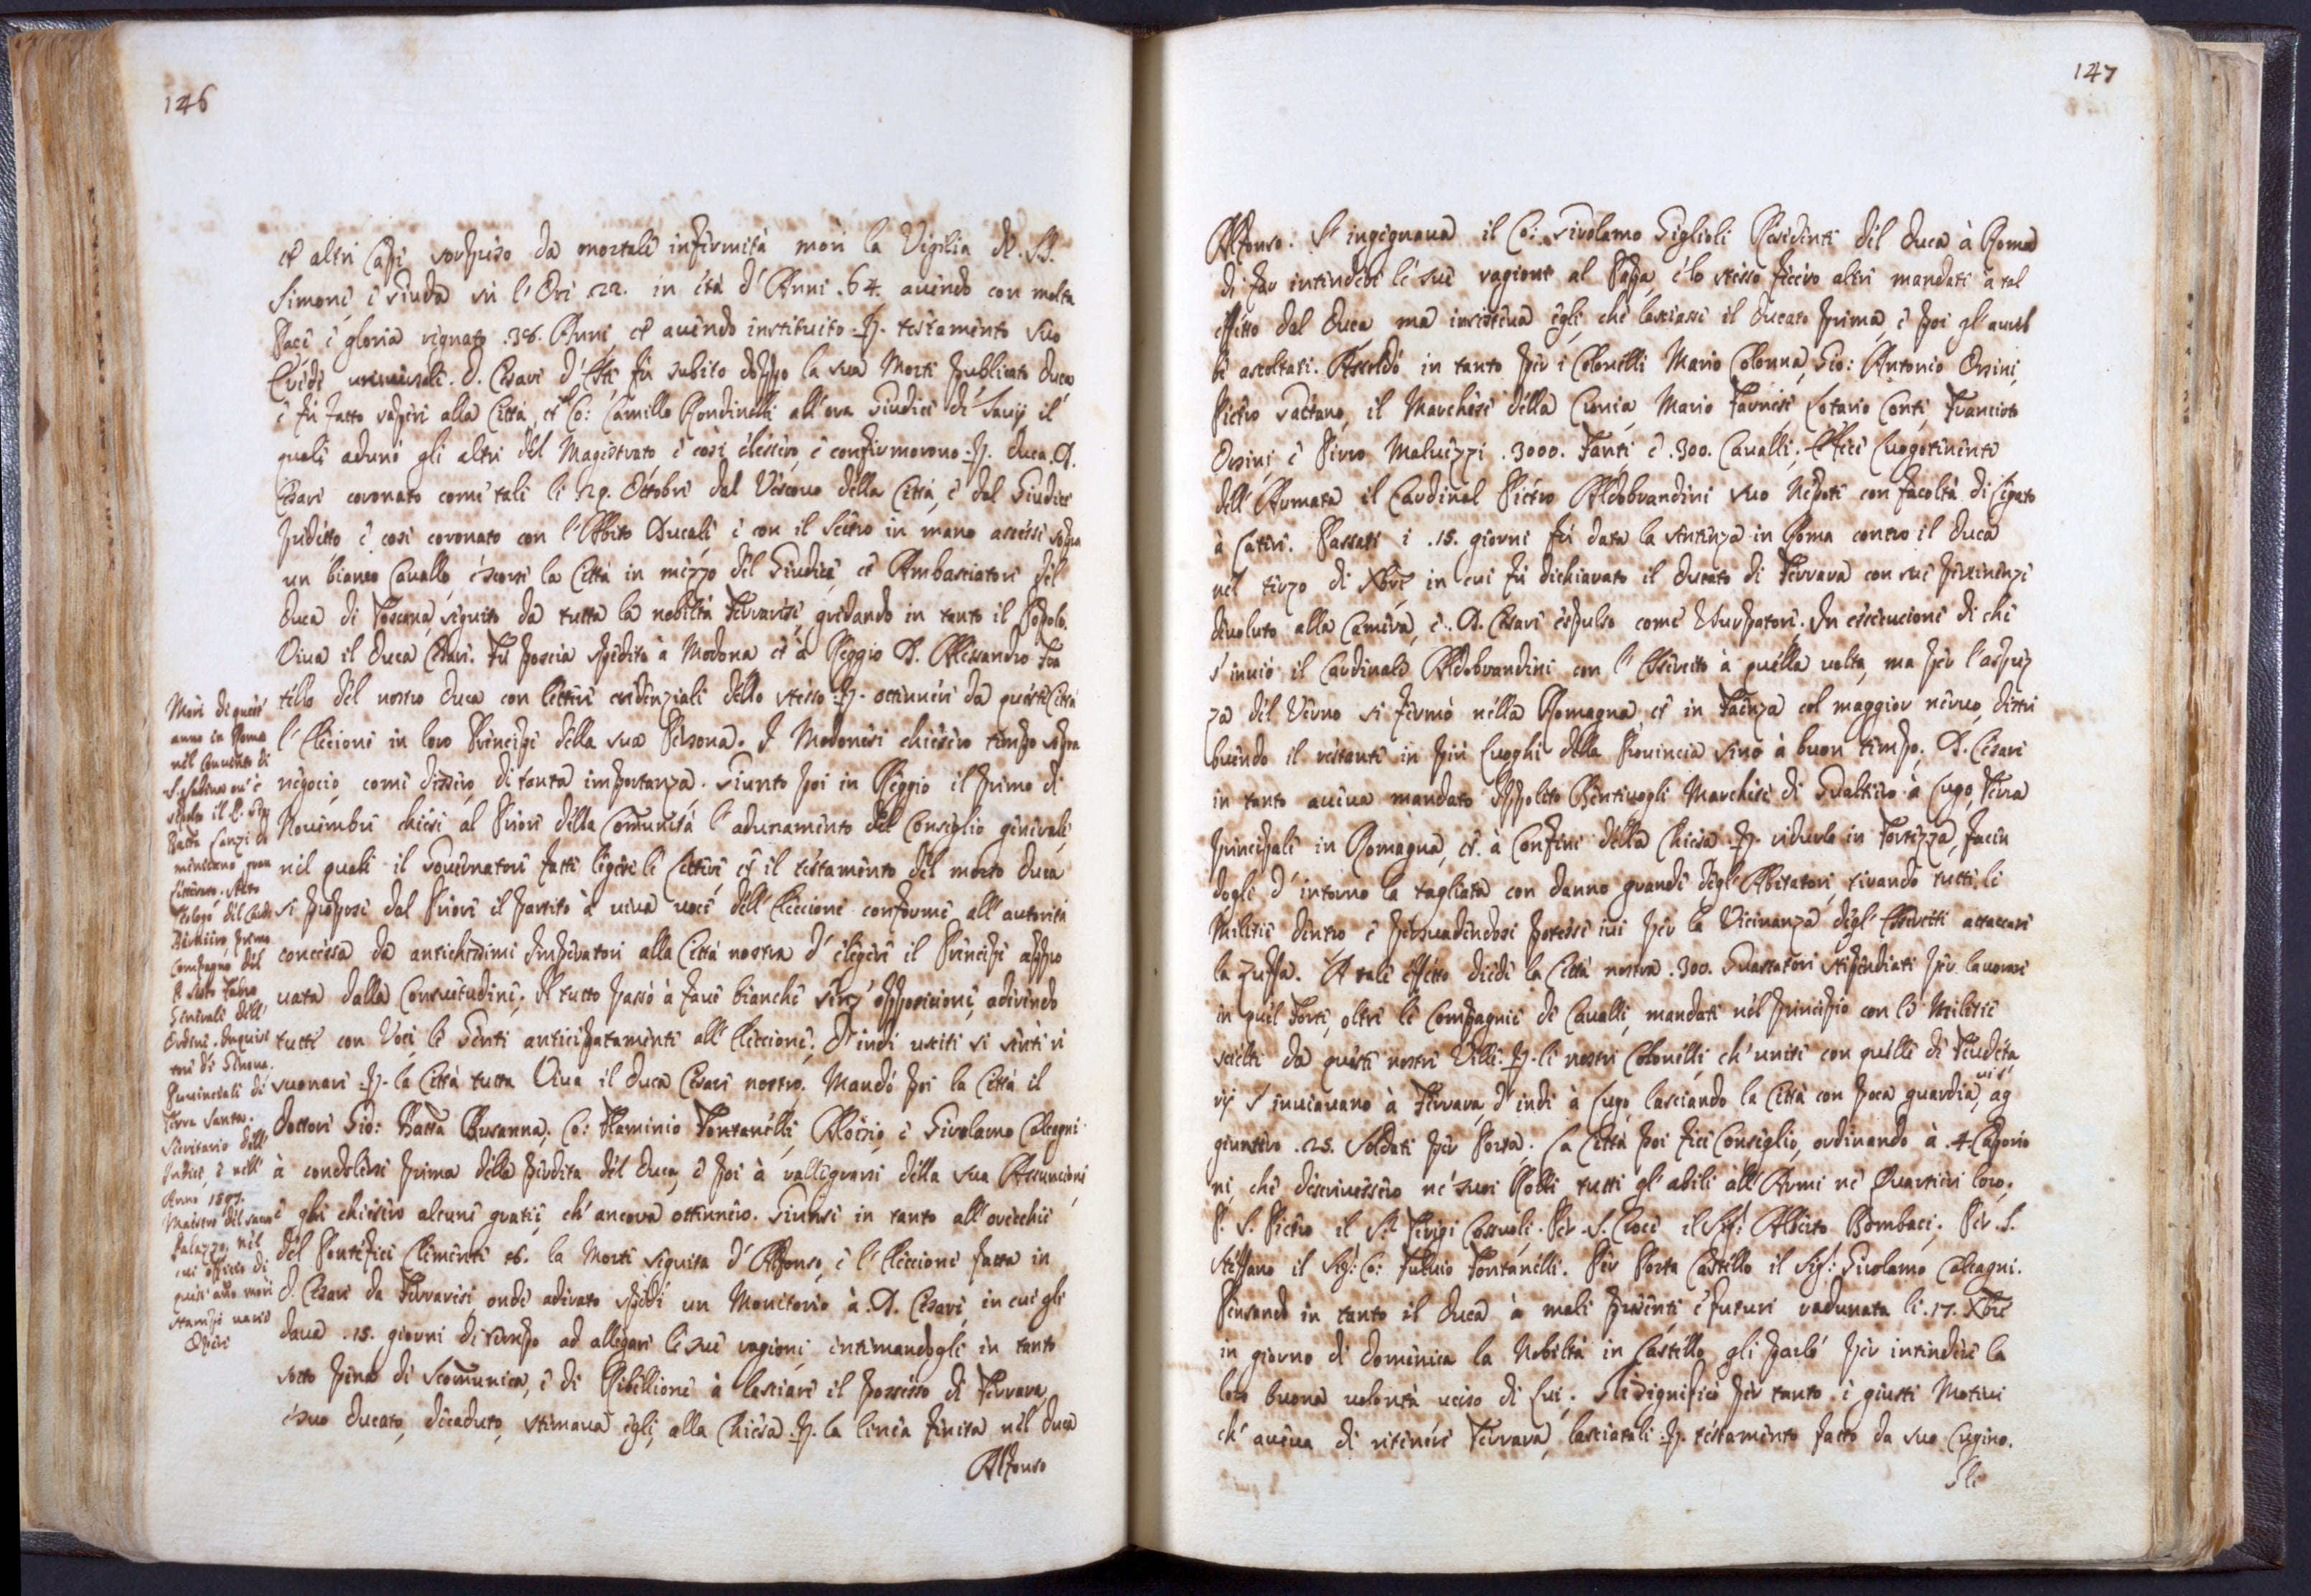 146
et altri Capi sorpreso da mortale infirmità morì la Vigilia de SS.
Simone, e Giuda sù l'Ore 22. in età d'Anni .64. auendo con molta
Pace e gloria regnato .38. Anni, et auendo instituito p. testamento suo
Erede uniuersale D. Cesare d'Este fù subito doppo la sua Morte publicato Duca
e fù fatto sapere alla Città, et Co: Camillo Rondinelli all'ora Giudice de' Sauij il
quale adunò gli altri del Magistrato, e così elessero, e confirmorono p. Duca D.
Cesare coronato come tale li 29. Ottobre dal Vescouo della Città, e dal Giudice
predetto e così coronato con l'Abito Ducale e con il Scetro in mano ascese sopra
un bianco Cauallo, e scorse la Città in mezzo del Giudice et Ambasciatore del
Duca di Toscana, seguito da tutta la nobiltà Ferrarese, gridando in tanto il Popolo.
Viua il Duca Cesare. Fù poscia spedito à Modona et à Reggio D. Alessandro Fra
tello del nostro Duca con lettere credenziali dello stesso p. ottenere da queste Città
l'Elecione in loro Principe della sua Persona. I Modonesi chiesero tempo sopra
negocio, come dissero, di tanta importanza. Giunto poi in Reggio il primo di
Nouembre chiese al Priore della Comunità l'adunamento del Consiglio generale,
nel quale il Gouernatore fatte legere le lettere et il testamento del morto Duca
si propose dal Priore il partito à uiua uoce dell'Elecione conforme all'autorità
concessa da antichissimi Imperatori alla Città nostra d'elegere il Principe appro
uata dalla Consuetudine. Il tutto passò à faue bianche senz'opposicione, aderendo
tutte con Voci le Genti anticipatamente all'Elecione. D'indi usciti si sentì ri
suonare p. la Città tutta Viua il Duca Cesare nostro. Mandò poi la Città il
Dottore Gio: Batta Busanna, Co: Flaminio Fontanelli, Aloisio e Girolamo Calcagni
à condolersi prima della perdita del Duca, e poi à rallegrarsi della sua Assuncione
e gli chiesero alcune gratie, ch'ancora ottennero. Giunse in tanto all'orecchie
del Pontefice Clemente 8. la Morte seguita d'Alfonso, e l'Elecione fatta in
D. Cesare da Ferraresi, onde adirato spedì un Monitorio à D. Cesare, in cui gli
daua .15. giorni di tempo ad allegare le sue ragioni, intimandogli in tanto
sotto pena di Scomunica, e di Ribellione à lasciare il possesso di Ferrara,
e suo Ducato, decaduto, stimaua egli, alla Chiesa p. la linea finita nel Duca
Alfonso
Morì di quest'
anno in Roma
nel Conuento di
S. Sabina ou'è
sepolto il P. Gio:
Batta Lanzi Do
menicano gran
Letterato. Stato
Teologo del Card.
primo
Compagno del
P. Sisto Fabro
Generale dell'
Ordine. Inquisi
tore di Genoua.
Prouinciale di
Terra Santa.
Secretario dell'
Indice, e nell'
Anno 1597.
Maestro del sacro
Palazzo, nel
cui officio di
quest'anno morì
stampò uarie
Opere
147
Alfonso. S'ingegnaua il Co: Girolamo Giglioli Residente del Duca à Roma
di far intendere le sue ragione al Papa, e lo stesso fecero altri mandati à tal
effetto dal Duca ma insisteua egli che lasciasse il Ducato prima, e poi gl'aureb
be ascoltati. Assoldò in tanto per i Colonelli Mario Colonna, Gio: Antonio Orsini,
Pietro Gaetano, il Marchese della Cronia, Mario Farnese, Lotario Conti, Franciotto
Orsini, e Pirro Maluezzi .3000. Fanti, e .300. Caualli. E fece Luogotenente
dell'Armata il Cardinal Pietro Aldobrandini suo Nepote con facoltà di Legato
à Latere. Passati i .15. giorni fù data la sentenza in Roma contro il Duca
nel terzo di Xbre, in cui fù dichiarato il Ducato di Ferrara con sue pertinenze
deuoluto alla Camera, e D. Cesare espulso come Usurpatore. In essecucione di che
s'inuiò il Cardinale Aldobrandini con l'Essercito à quella uolta, ma per l'asprez
za del Verno si fermò nella Romagna, et in Faenza col maggior neruo, distri
buendo il restante in più Luoghi della Prouincia sino à buon tempo. D. Cesare
in tanto aueua mandato Ippolito Bentiuogli Marchese di Gualtiero à Lugo, Terra
principale in Romagna, et à Confine della Chiesa p. ridurla in Fortezza, facen
dogli d'intorno la tagliata con danno grande degl'Abitatori, tirando tutte le
Milizie dentro, e persuadendosi potesse iui per la Vicinanza degl'Esserciti attaccarsi
la zuffa. A tale effetto diede la Città nostra .300. Guastatori stipendiati per lauorare
in quel Forte, oltre le Compagnie di Caualli, mandate nel principio con le Milizie
scielte da queste nostre Ville p. li nostri Colonelli, ch'unite con quelle di Feudeta
rij s'inuiauano à Ferrara, d'indi à Lugo, lasciando la Città con poca guardia, ui s' ag
giunsero .25. Soldati per Porta. La Città poi fece Consiglio, ordinando à .4. Caporio
ni, che descriuessero ne' suoi Rolli tutti gl'abili all'Armi ne' Quartieri loro.
P. S. Pietro il Sig. Perigi Cassoli. Per S. Croce il Sig: Alberto Bombaci. Per S.
Steffano il Sig: Co: Fuluio Fontanelli. Per Porta Castello il Sig: Girolamo Calcagni.
Pensando in tanto il Duca à mali presenti, e futuri radunata li .17. Xbre
in giorno di Domenica la Nobiltà in Castello gli parlò per intendere la
loro buona uolontà uerso di Lui. Gli significò per tanto i giusti Motiui
ch'aueua di ritenere Ferrara, lasciatali p. testamento fatto da suo Cugino.
Gli